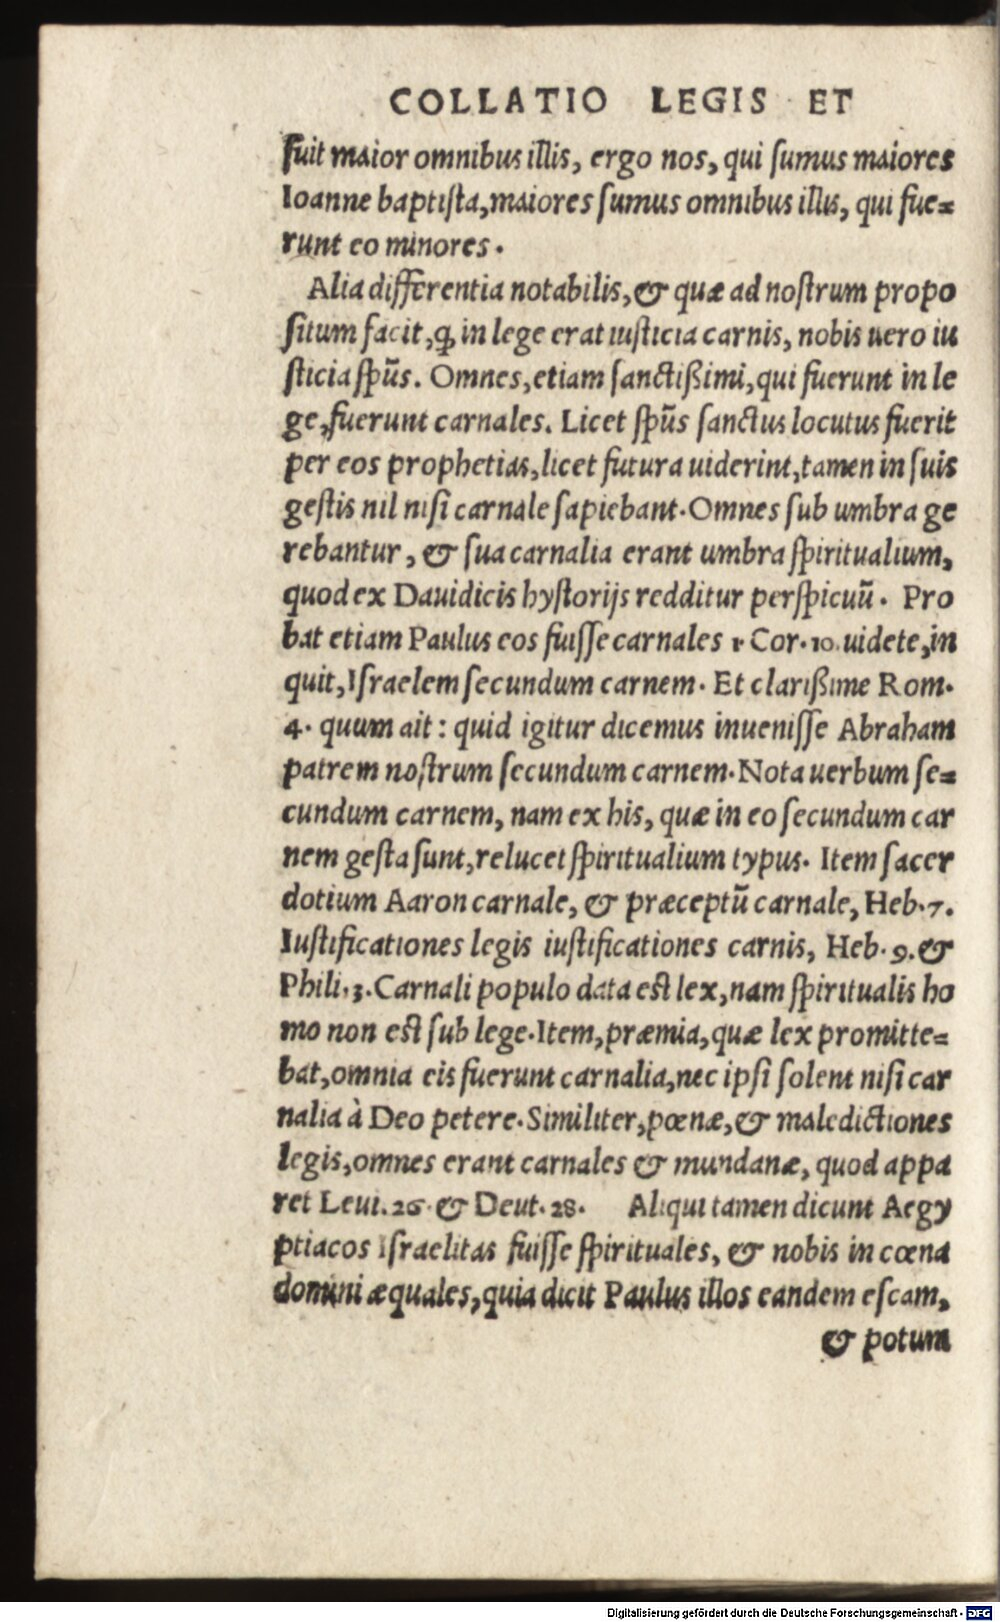 COLLATIO LEGIS ET
fuit maior omnibus illis, ergo nos, qui ſumus maiores
Ioanne baptiſta, maiores ſumus omnibus illis, qui fue=
runt eo minores.
Alia differentia notabilis, & quæ ad noſtrum propo
ſitum facit, ꝙ in lege erat iuſticia carnis, nobis uero iu
ſticia ſpūs. Omnes, etiam ſanctißimi, qui fuerunt in le
ge, fuerunt carnales. Licet ſpūs ſanctus locutus fuerit
per eos prophetias, licet futura uiderint, tamen in ſuis
geſtis nil niſi carnale ſapiebant. Omnes ſub umbra ge
rebantur, & ſua carnalia erant umbra ſpiritualium,
quod ex Dauidicis hyſtorijs redditur perſpicuū. Pro
bat etiam Paulus eos fuiſſe carnales 1. Cor. 10. uidete, in
quit, Iſraelem ſecundum carnem. Et clarißime Rom.
4. quum ait: quid igitur dicemus inueniſſe Abraham
patrem noſtrum ſecundum carnem. Nota uerbum ſe=
cundum carnem, nam ex his, quæ in eo ſecundum car
nem geſta ſunt, relucet ſpiritualium typus. Item ſacer
dotium Aaron carnale, & præceptū carnale, Heb. 7.
Iuſtificationes legis iuſtificationes carnis, Heb. 9. &
Phili. 3. Carnali populo data eſt lex, nam ſpiritualis ho
mo non eſt ſub lege. Item, præmia, quæ lex promitte=
bat, omnia eis fuerunt carnalia, nec ipſi ſolent niſi car
nalia à Deo petere. Similiter, pœnæ, & maledictiones
legis, omnes erant carnales & mundanæ, quod appa
ret Leui. 26. & Deut. 28. Aliqui tamen dicunt Aegy
ptiacos Iſraelitas fuiſſe ſpirituales, & nobis in cœna
domini æquales, quia dicit Paulus illos eandem eſcam,
& potum
Digitalisierung gefördert durch die Deutsche Forschungsgemeinschaft - DFG